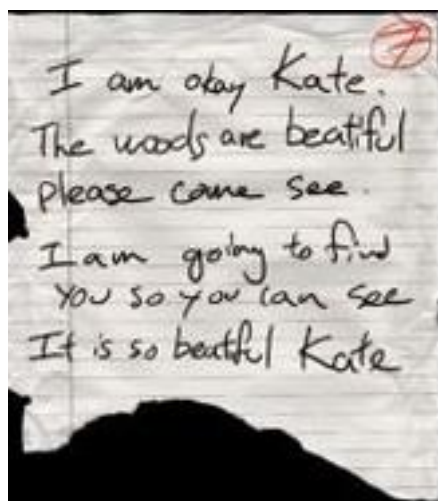 7
I am okay Kate.
The woods are beatiful
please come see.
I am going to find
you so you can see
It is so beatful Kate